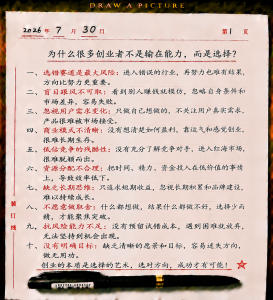 DRAW A PICTURE
2026 年 7 月 30 日 第 1 页
为什么很多创业者不是输在能力，而是选择？
一、选错赛道是最大风险：进入错误的行业，再努力也难有结果，
方向比努力更重要。
二、盲目跟风不可取：看到别人赚钱就模仿，忽略自身条件和
市场差异，容易失败。
三、忽视用户需求变化：只做自己想做的，不关注用户真实需求，
产品很难被市场接受。
四、商业模式不清晰：没有想清楚如何盈利，靠运气和感觉创业，
很难长期生存。
五、低估竞争的残酷性：没有充分了解竞争对手，进入红海市场，
很难脱颖而出。
六、资源分配不合理：把时间、精力、资金投入在低价值的事情
上，导致效率低下。
七、缺乏长期思维：只追求短期收益，忽视长期积累和品牌建设，
难以持续成长。
八、不愿意做取舍：什么都想做，结果什么都做不好，选择少而
精，才能聚焦突破。
九、抗风险能力不足：没有预留试错成本，遇到困难就放弃，
无法坚持到机会出现。
十、没有明确目标：缺乏清晰的愿景和目标，容易迷失方向，
做无用功。
创业的本质是选择的艺术，选对方向，成功才有可能！
装订线